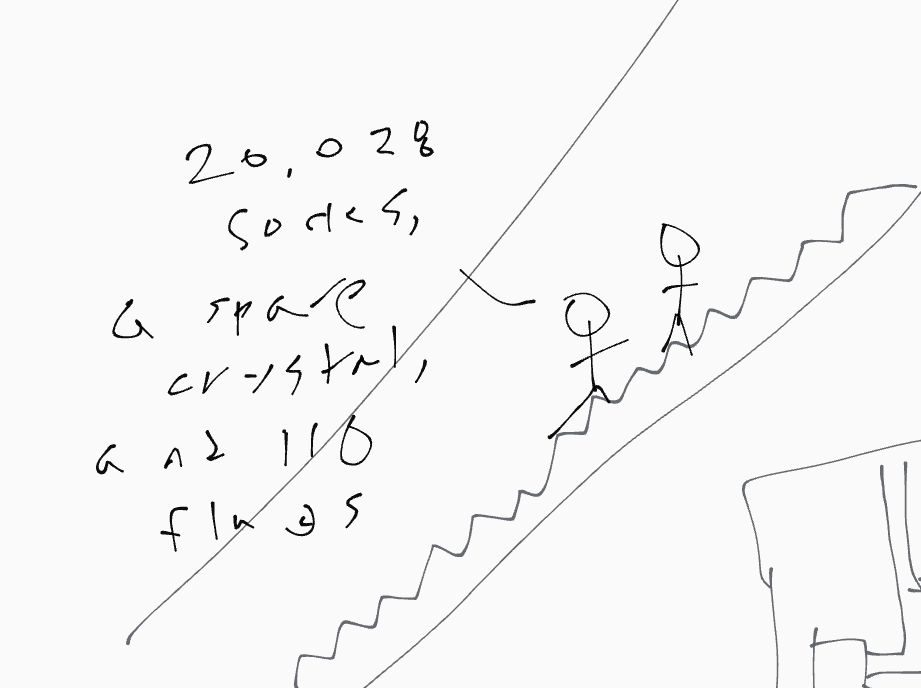 20,028
sodes,
a spare
crystal,
and 110